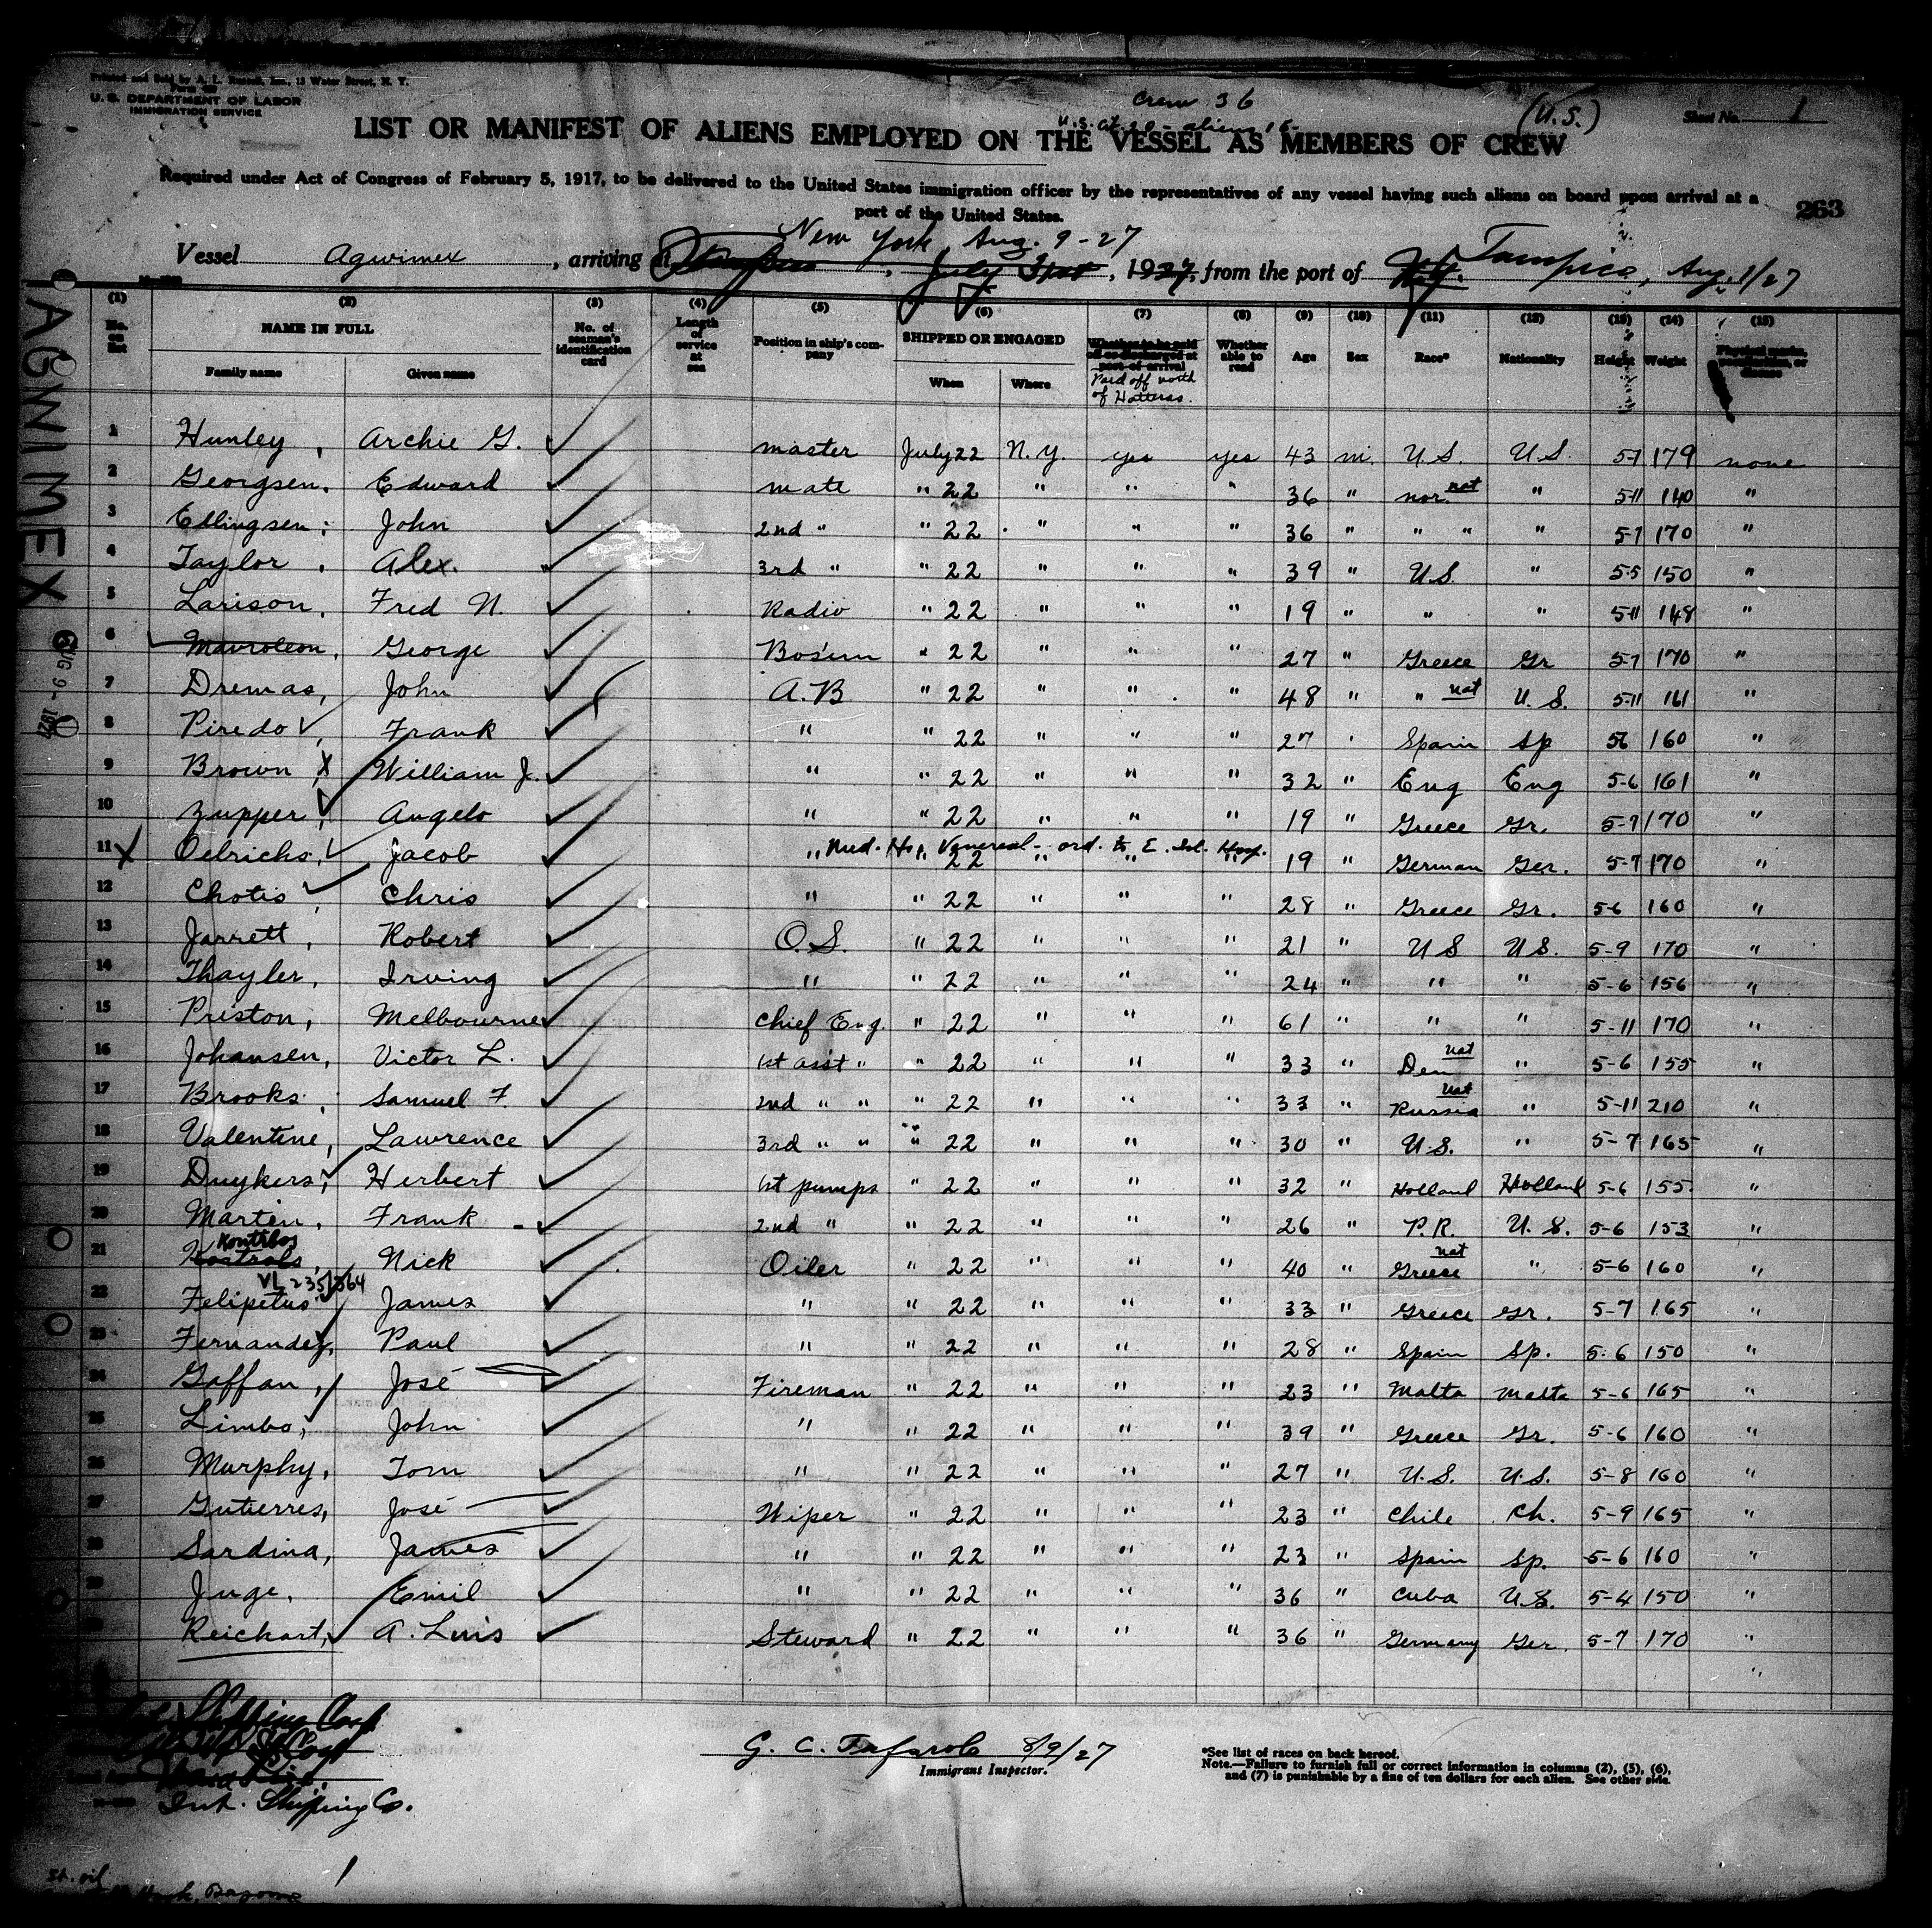 Printed and Sold by A. L. Russell, Inc., 13 Water Street, N. Y.
U. S. DEPARTMENT OF LABOR
IMMIGRATION SERVICE
Crew 36
(U.S.)
Sheet No. 1
LIST OR MANIFEST OF ALIENS EMPLOYED ON THE VESSEL AS MEMBERS OF CREW
Required under Act of Congress of February 5, 1917, to be delivered to the United States immigration officer by the representatives of any vessel having such aliens on board upon arrival at a
port of the United States.
263
New York, Aug. 9-27
Vessel Agwimex, arriving at July 31st, 1927, from the port of N.Y. Tampico, Aug. 1/27
AGWIMEX
AUG 9 - 1927
(1) (2) (3) (4) (5) (6) (7) (8) (9) (10) (11) (12) (13) (14) (15)
No. on list NAME IN FULL Family name Given name No. of seaman's identification card Length of service at sea Position in ship's company SHIPPED OR ENGAGED When Where Whether to be paid off or discharged at port of arrival Paid off north of Hatteras. Whether able to read Age Sex Race* Nationality Height Weight Physical marks, peculiarities, or disease
1 Hunley, Archie G. master July 22 N.Y. yes yes 43 m. U.S. U.S. 5-7 179 none
2 Georgsen, Edward mate " 22 " " " 36 " nor. nat " 5-11 140 "
3 Ellingsen, John 2nd " " 22 " " " 36 " " " " 5-7 170 "
4 Taylor, Alex. 3rd " " 22 " " " 39 " U.S. " 5-5 150 "
5 Larison, Fred N. Radio " 22 " " " 19 " " " 5-11 148 "
6 Mavroleon, George Bos'un " 22 " " " 27 " Greece Gr 5-7 170 "
7 Dremas, John A.B " 22 " " " 48 " " nat U.S. 5-11 161 "
8 Piredo, Frank " " 22 " " " 27 " Spain Sp 56 160 "
9 Brown, X William J. " " 22 " " " 32 " Eng Eng 5-6 161 "
10 Zupper, Angelo " " 22 " " " 19 " Greece Gr. 5-7 170 "
11 X Oelrichs, Jacob " Med. Hop. Venereal - ord. to E. Isl. Hosp. 22 " " " 19 " German Ger. 5-7 170 "
12 Chotis, Chris " " 22 " " " 28 " Greece Gr. 5-6 160 "
13 Jarrett, Robert O.S. " 22 " " " 21 " U S U.S. 5-9 170 "
14 Thayler, Irving " " 22 " " " 24 " " " 5-6 156 "
15 Priston, Melbourne Chief Eng. " 22 " " " 61 " " " 5-11 170 "
16 Johansen, Victor L. 1st ass't " " 22 " " 33 " Den nat " 5-6 155 "
17 Brooks, Samuel F. 2nd " " " 22 " " " 33 " Russia nat " 5-11 210 "
18 Valentine, Lawrence 3rd " " " 22 " " " 30 " U.S. " 5-7 165 "
19 Duykers, Herbert 1st pumps " 22 " " " 32 " Holland Holland 5-6 155 "
20 Martin, Frank 2nd " " 22 " " " 26 " P.R. U.S. 5-6 153 "
21 Kostrobs, Kontibos Nick Oiler " 22 " " " 40 " Greece nat " 5-6 160 "
VL 235/364
22 Felipetus, James " " 22 " " " 33 " Greece Gr. 5-7 165 "
23 Fernandez, Paul " " 22 " " " 28 " Spain Sp. 5-6 150 "
24 Gaffan, José Fireman " 22 " " " 23 " Malta Malta 5-6 165 "
25 Limbo, John " " 22 " " " 39 " Greece Gr. 5-6 160 "
26 Murphy, Tom " " 22 " " " 27 " U.S. U.S. 5-8 160 "
27 Gutierres, José Wiper " 22 " " " 23 " Chile Ch. 5-9 165 "
28 Sardina, James " " 22 " " " 23 " Spain Sp. 5-6 160 "
29 Juge, Emil " " 22 " " " 36 " Cuba U.S. 5-4 150 "
Reichart, A. Luis Steward " 22 " " " 36 " Germany Ger. 5-7 170 "
"
Int. Shipping Co.
G. C. Tafarolo 8/9/27
Immigrant Inspector.
*See list of races on back hereof.
Note.—Failure to furnish full or correct information in columns (2), (5), (6),
and (7) is punishable by a fine of ten dollars for each alien. See other side.
St. oil
1